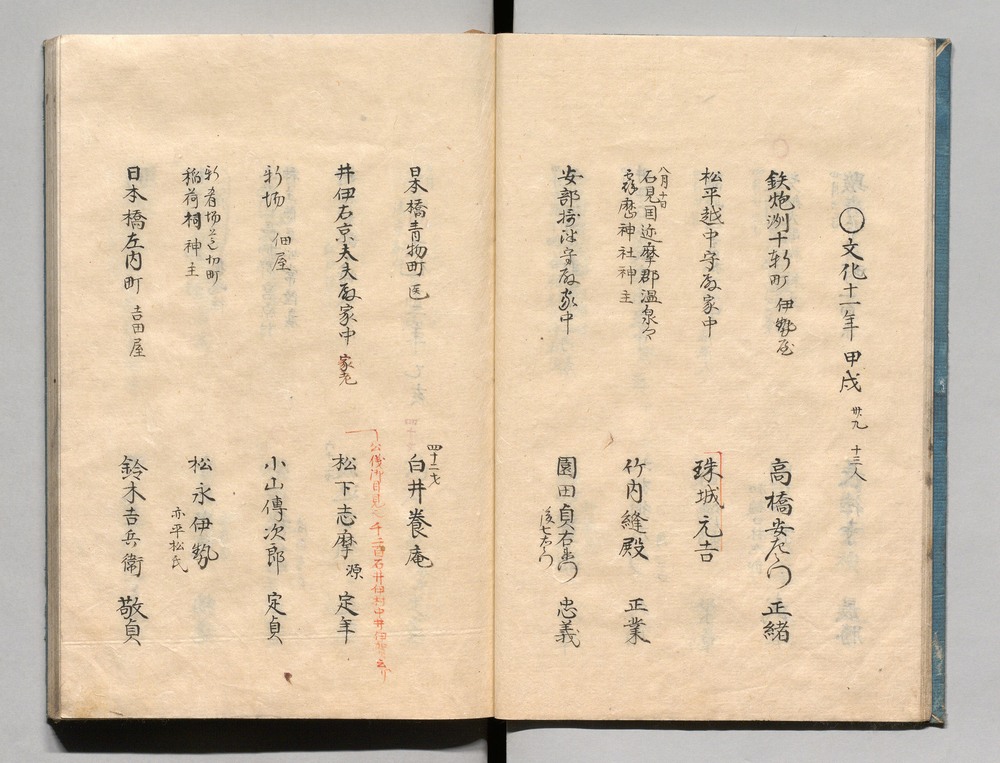 〇文化十一年 甲戌 卅九 十三人
鉄炮洲十軒町 伊勢屋 高橋安左衛門 正緒
松平越中守殿家中 珠城元吉
八月十日
石見国迩摩郡温泉
神社神主 竹内縫殿 正業
安部摂津守殿家中 園田貞右衛門 忠義
後七右衛門
日本橋青物町 医 白井養庵
四十二才
井伊右京太夫殿家中 家老 松下志摩 源定年
公儀御目見 千二百石井伊
新場 佃屋 小山傳次郎 定貞
新肴場
稲荷祠神主 松永伊勢
亦平松氏
日本橋左内町 吉田屋 鈴木吉兵衛 敬貞